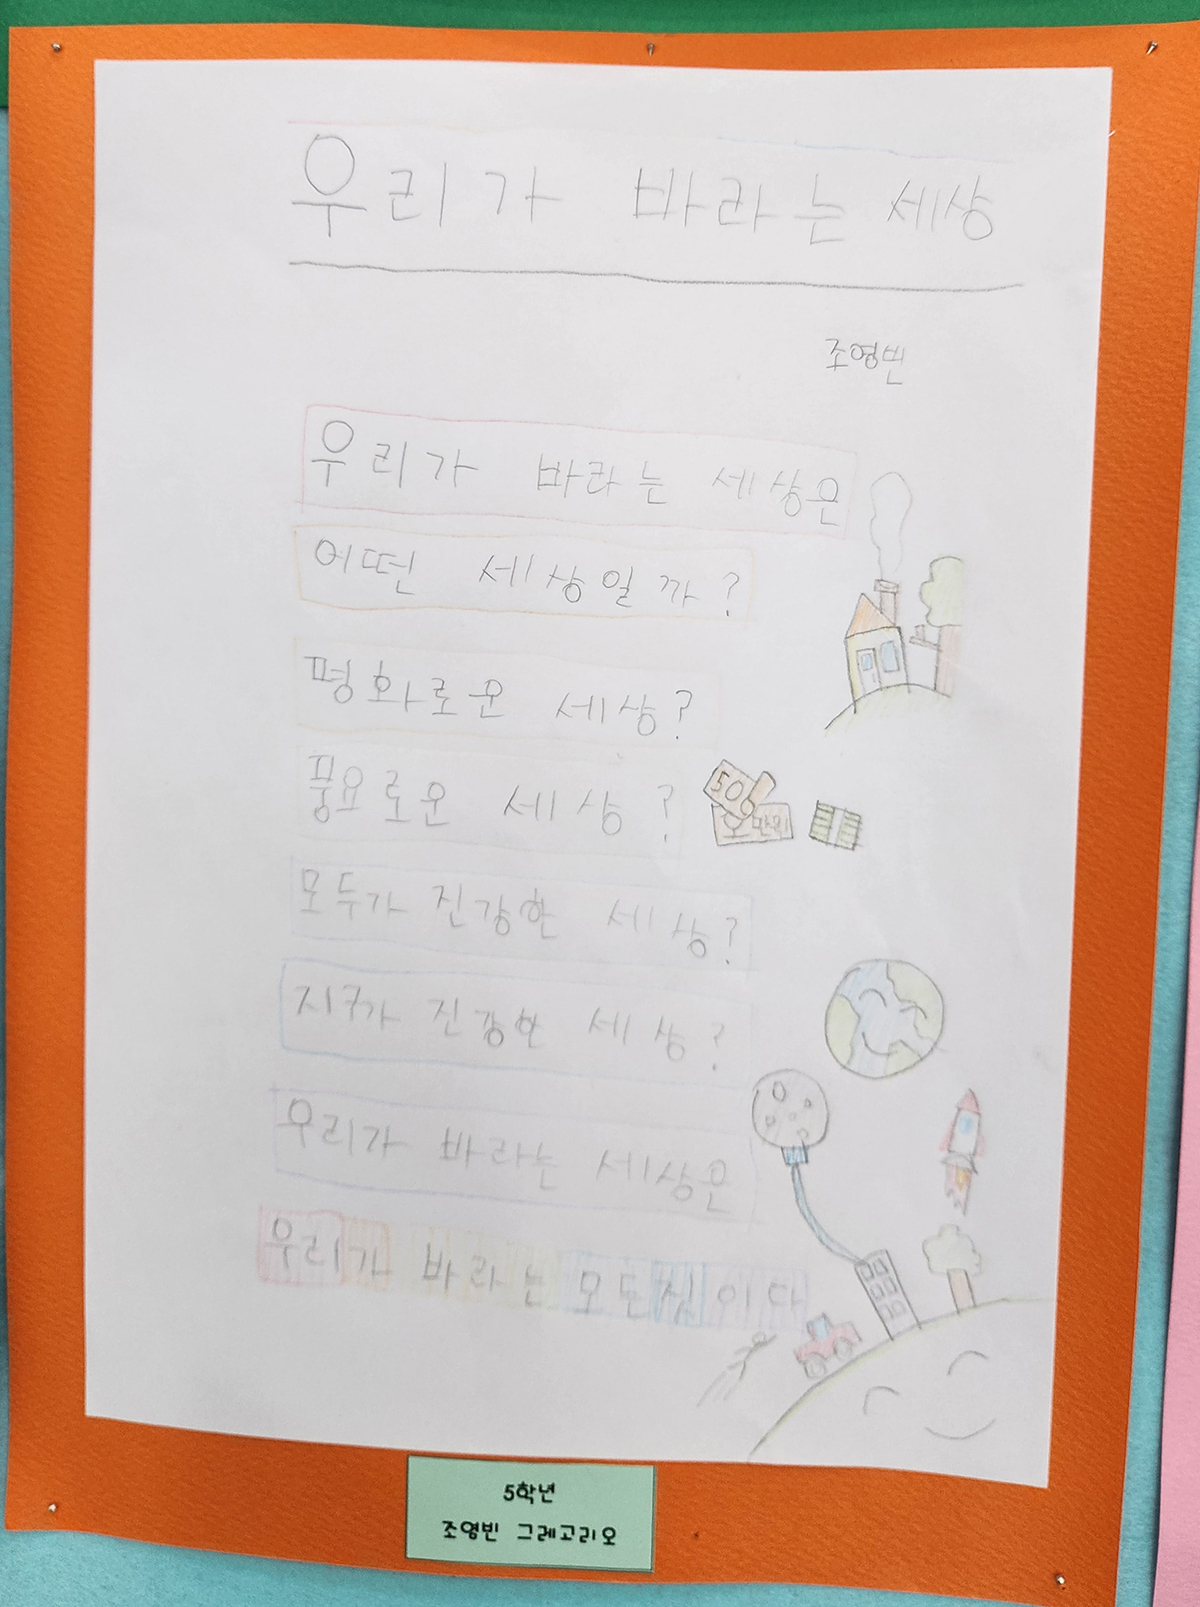 우리가 바라는 세상
조영빈
우리가 바라는 세상은
어떤 세상일까?
평화로운 세상?
풍요로운 세상?
모두가 진강한 세상?
지구가 진강한 세상?
우리가 바라는 세상은
우리가 바라는 모든 것이다
5학년
조영빈 그레고리오